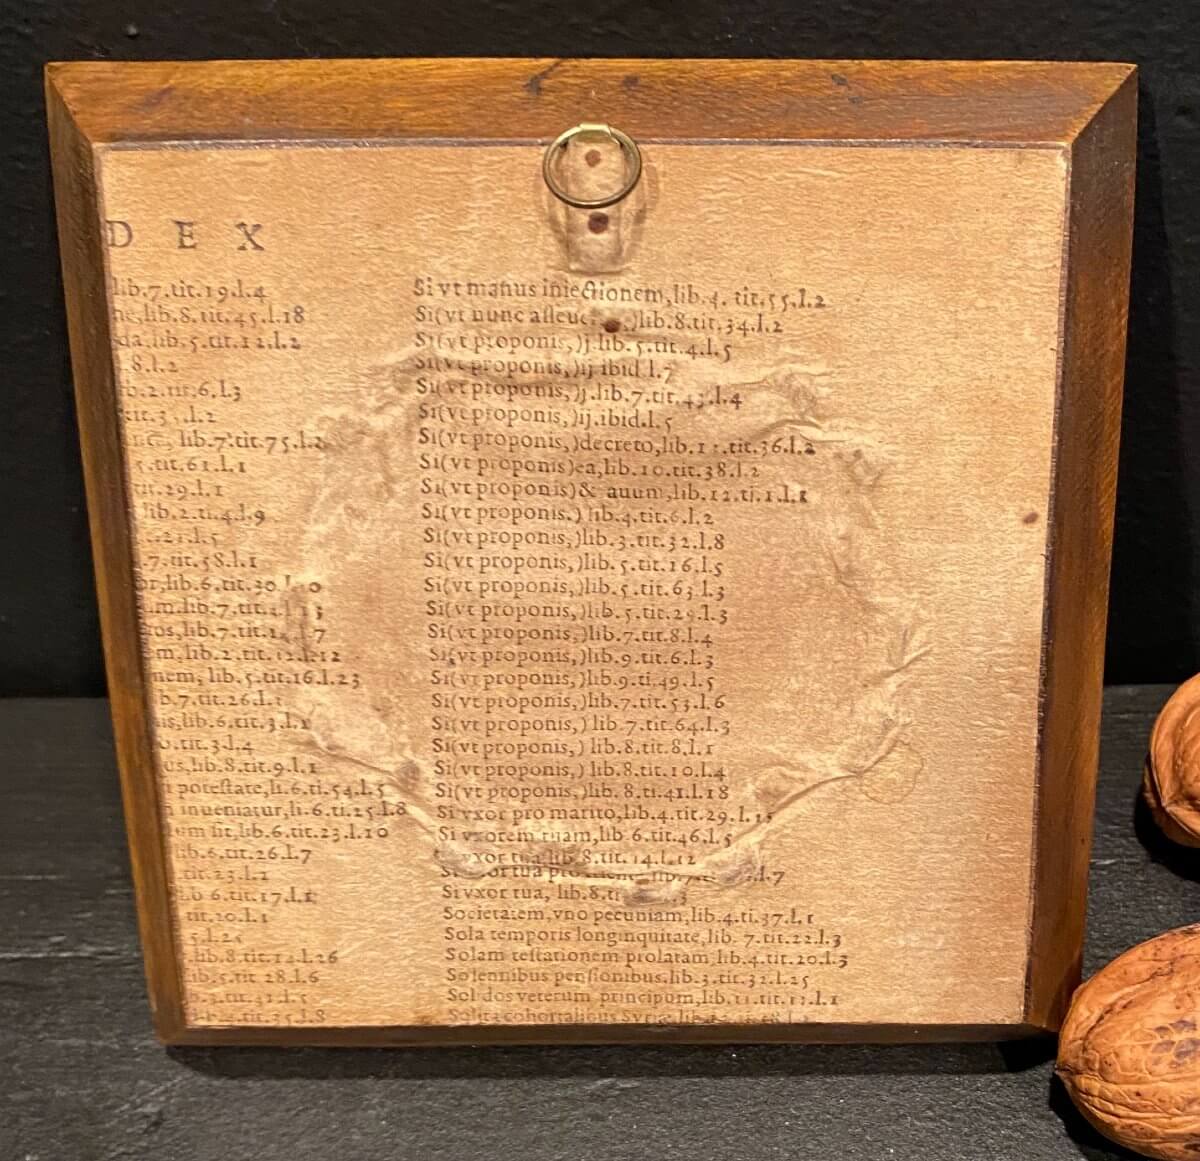 D E X
lib.7.tit.19.l.4
ne,lib.8.tit.45.l.18
da,lib.5.tit.12.l.2
8.l.2
b.2.tit.6.l.3
lib.7.tit.75.l.2
5.tit.61.l.1
tit.29.l.1
lib.2.ti.4.l.9
.21.l.5
.7.tit.58.l.1
or,lib.6.tit.30.l.10
um.lib.7.tit.2.l.13
ros,lib.7.tit.14.l.7
om,lib.2.tit.12.l.12
nem, lib.5.tit.16.l.23
b.7.tit.26.l.1
is,lib.6.tit.3.l.1
o.tit.3.l.4
us,lib.8.tit.9.l.1
poteſtate,li.6.ti.54.l.5
inueniatur,li.6.ti.25.l.8
um ſit,lib.6.tit.23.l.10
lib.6.tit.26.l.7
.tit.23.l.2
ib 6.tit.17.l.1
tit.20.l.1
5.l.25
lib.8.tit.14.l.26
lib.5.tit 28.l.6
b.3.tit.31.l.5
tit.35.l.8
Si vt manus iniectionem,lib.4. tit.55.l.2
Si(vt nunc )lib.8.tit.34.l.2
Si(vt proponis,)j.lib.5.tit.4.l.5
Si(vt proponis,)ij ibid.l.7
Si(vt proponis,)j.lib.7.tit.43.l.4
Si(vt proponis,)ij.ibid.l.5
Si(vt proponis,)decreto,lib.11.tit.36.l.2
Si(vt proponis)ea,lib.10.tit.38.l.2
Si(vt proponis)& auum,lib.12.ti.1.l.1
Si(vt proponis.) lib.4.tit.6.l.2
Si(vt proponis,)lib.3.tit.32.l.8
Si(vt proponis,)lib.5.tit.16.l.5
Si(vt proponis,)lib.5.tit.63.l.3
Si(vt proponis,)lib.5.tit.29.l.3
Si(vt proponis,)lib.7.tit.8.l.4
Si(vt proponis,)lib.9.tit.6.l.3
Si(vt proponis,)lib.9.ti.49.l.5
Si(vt proponis,)lib.7.tit.53.l.6
Si(vt proponis,) lib.7.tit.64.l.3
Si(vt proponis,) lib.8.tit.8.l.1
Si(vt proponis,) lib.8.tit.10.l.4
Si(vt proponis,) lib.8.ti.41.l.18
Si vxor pro marito,lib.4.tit.29.l.15
Si vxorem tuam,lib.6.tit.46.l.5
vxor tua lib.8.tit.14.l.12
Si vxor tua l.7
Si vxor tua, lib.8.ti
Societatem,vno pecuniam,lib.4.ti.37.l.1
Sola temporis longinquitate,lib. 7.tit.22.l.3
Solam teſtationem prolatam,lib.4.tit.20.l.3
Solennibus penſionibus,lib.3.tit.32.l.25
Solidos veterum principum,lib.11.tit.11.l.1
Solita cohortalibus Syriæ